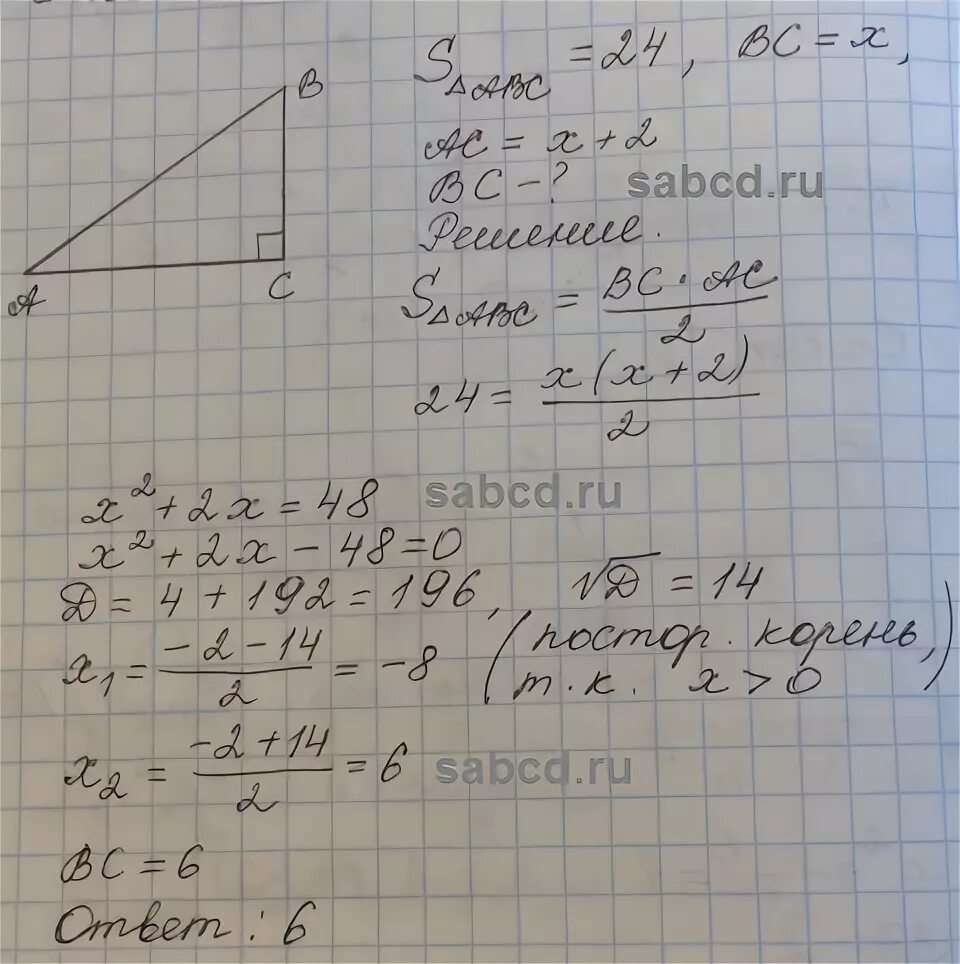 B
A
C
S△ABC = 24, BC = x,
AC = x + 2
BC - ?
sabcd.ru
Решение.
S△ABC = BC · AC / 2
24 = x(x + 2) / 2
x² + 2x = 48
sabcd.ru
x² + 2x - 48 = 0
D = 4 + 192 = 196, √D = 14
x₁ = (-2 - 14) / 2 = -8 (постор. корень, т.к. x > 0)
x₂ = (-2 + 14) / 2 = 6
sabcd.ru
BC = 6
Ответ: 6